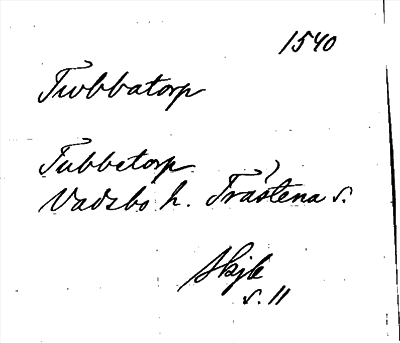 1540
Tubbatorp
Tubbetorp
Vadsbo h. Trästena s.
Skjb
s. 11